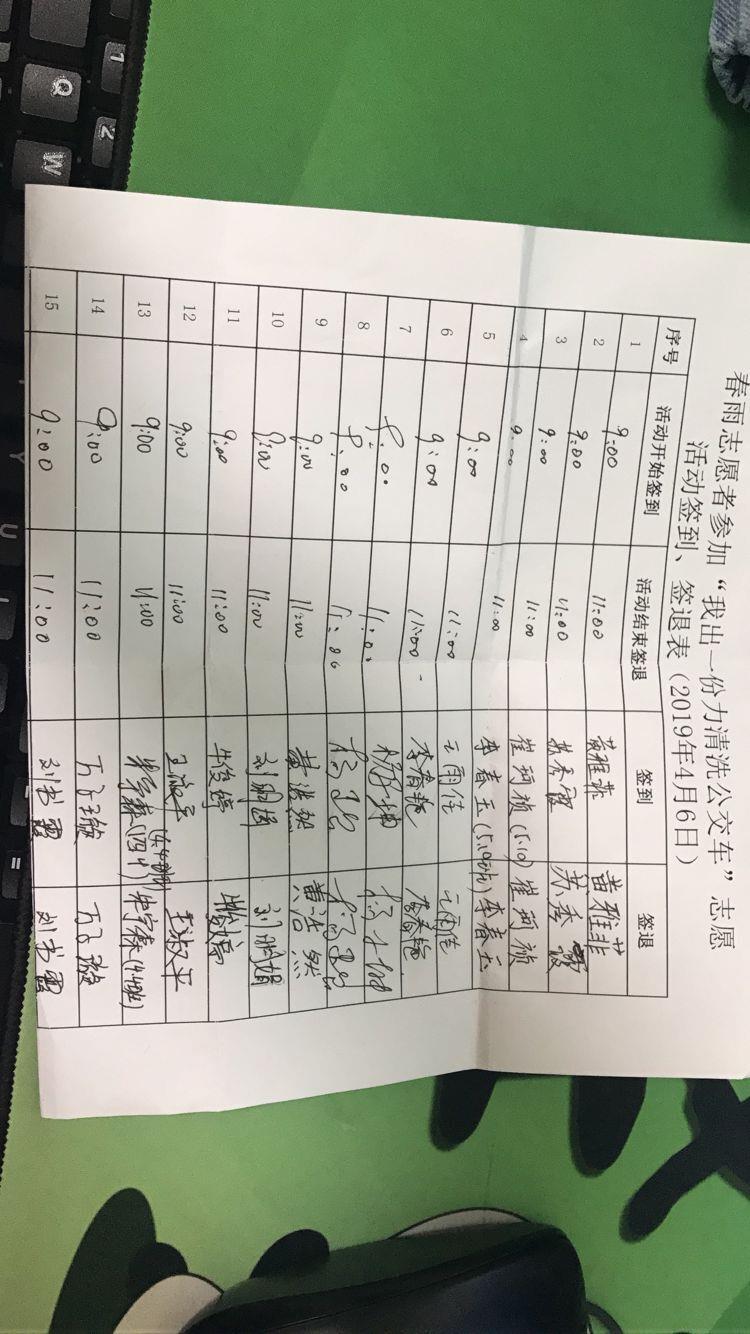 春雨志愿者参加“我出一份力清洗公交车”志愿
活动签到、签退表（2019年4月6日）
序号 活动开始签到 活动结束签退 签到 签退
1 9:00 11:00 黄雅菲 黄雅菲
2 9:00 11:00
3 9:00 11:00 崔珂祯(5.10) 崔珂祯
4 9:00 11:00 李春玉(5.10站) 李春玉
5 9:00 11:00 王雨佳 王雨佳
6 9:00 11:00 李春艳 李春艳
7 9:00 11:00
8 9:00 11:00
9 9:00 11:00 黄浩然 黄浩然
10 9:00 11:00 刘鹏娟 刘鹏娟
11 9:00 11:00
12 9:00 11:00 王淑平 王淑平
13 9:00 11:00
14 9:00 11:00 万子璇 万子璇
15 9:00 11:00 刘书霞 刘书霞
1
2
Q
W
Y
U
=